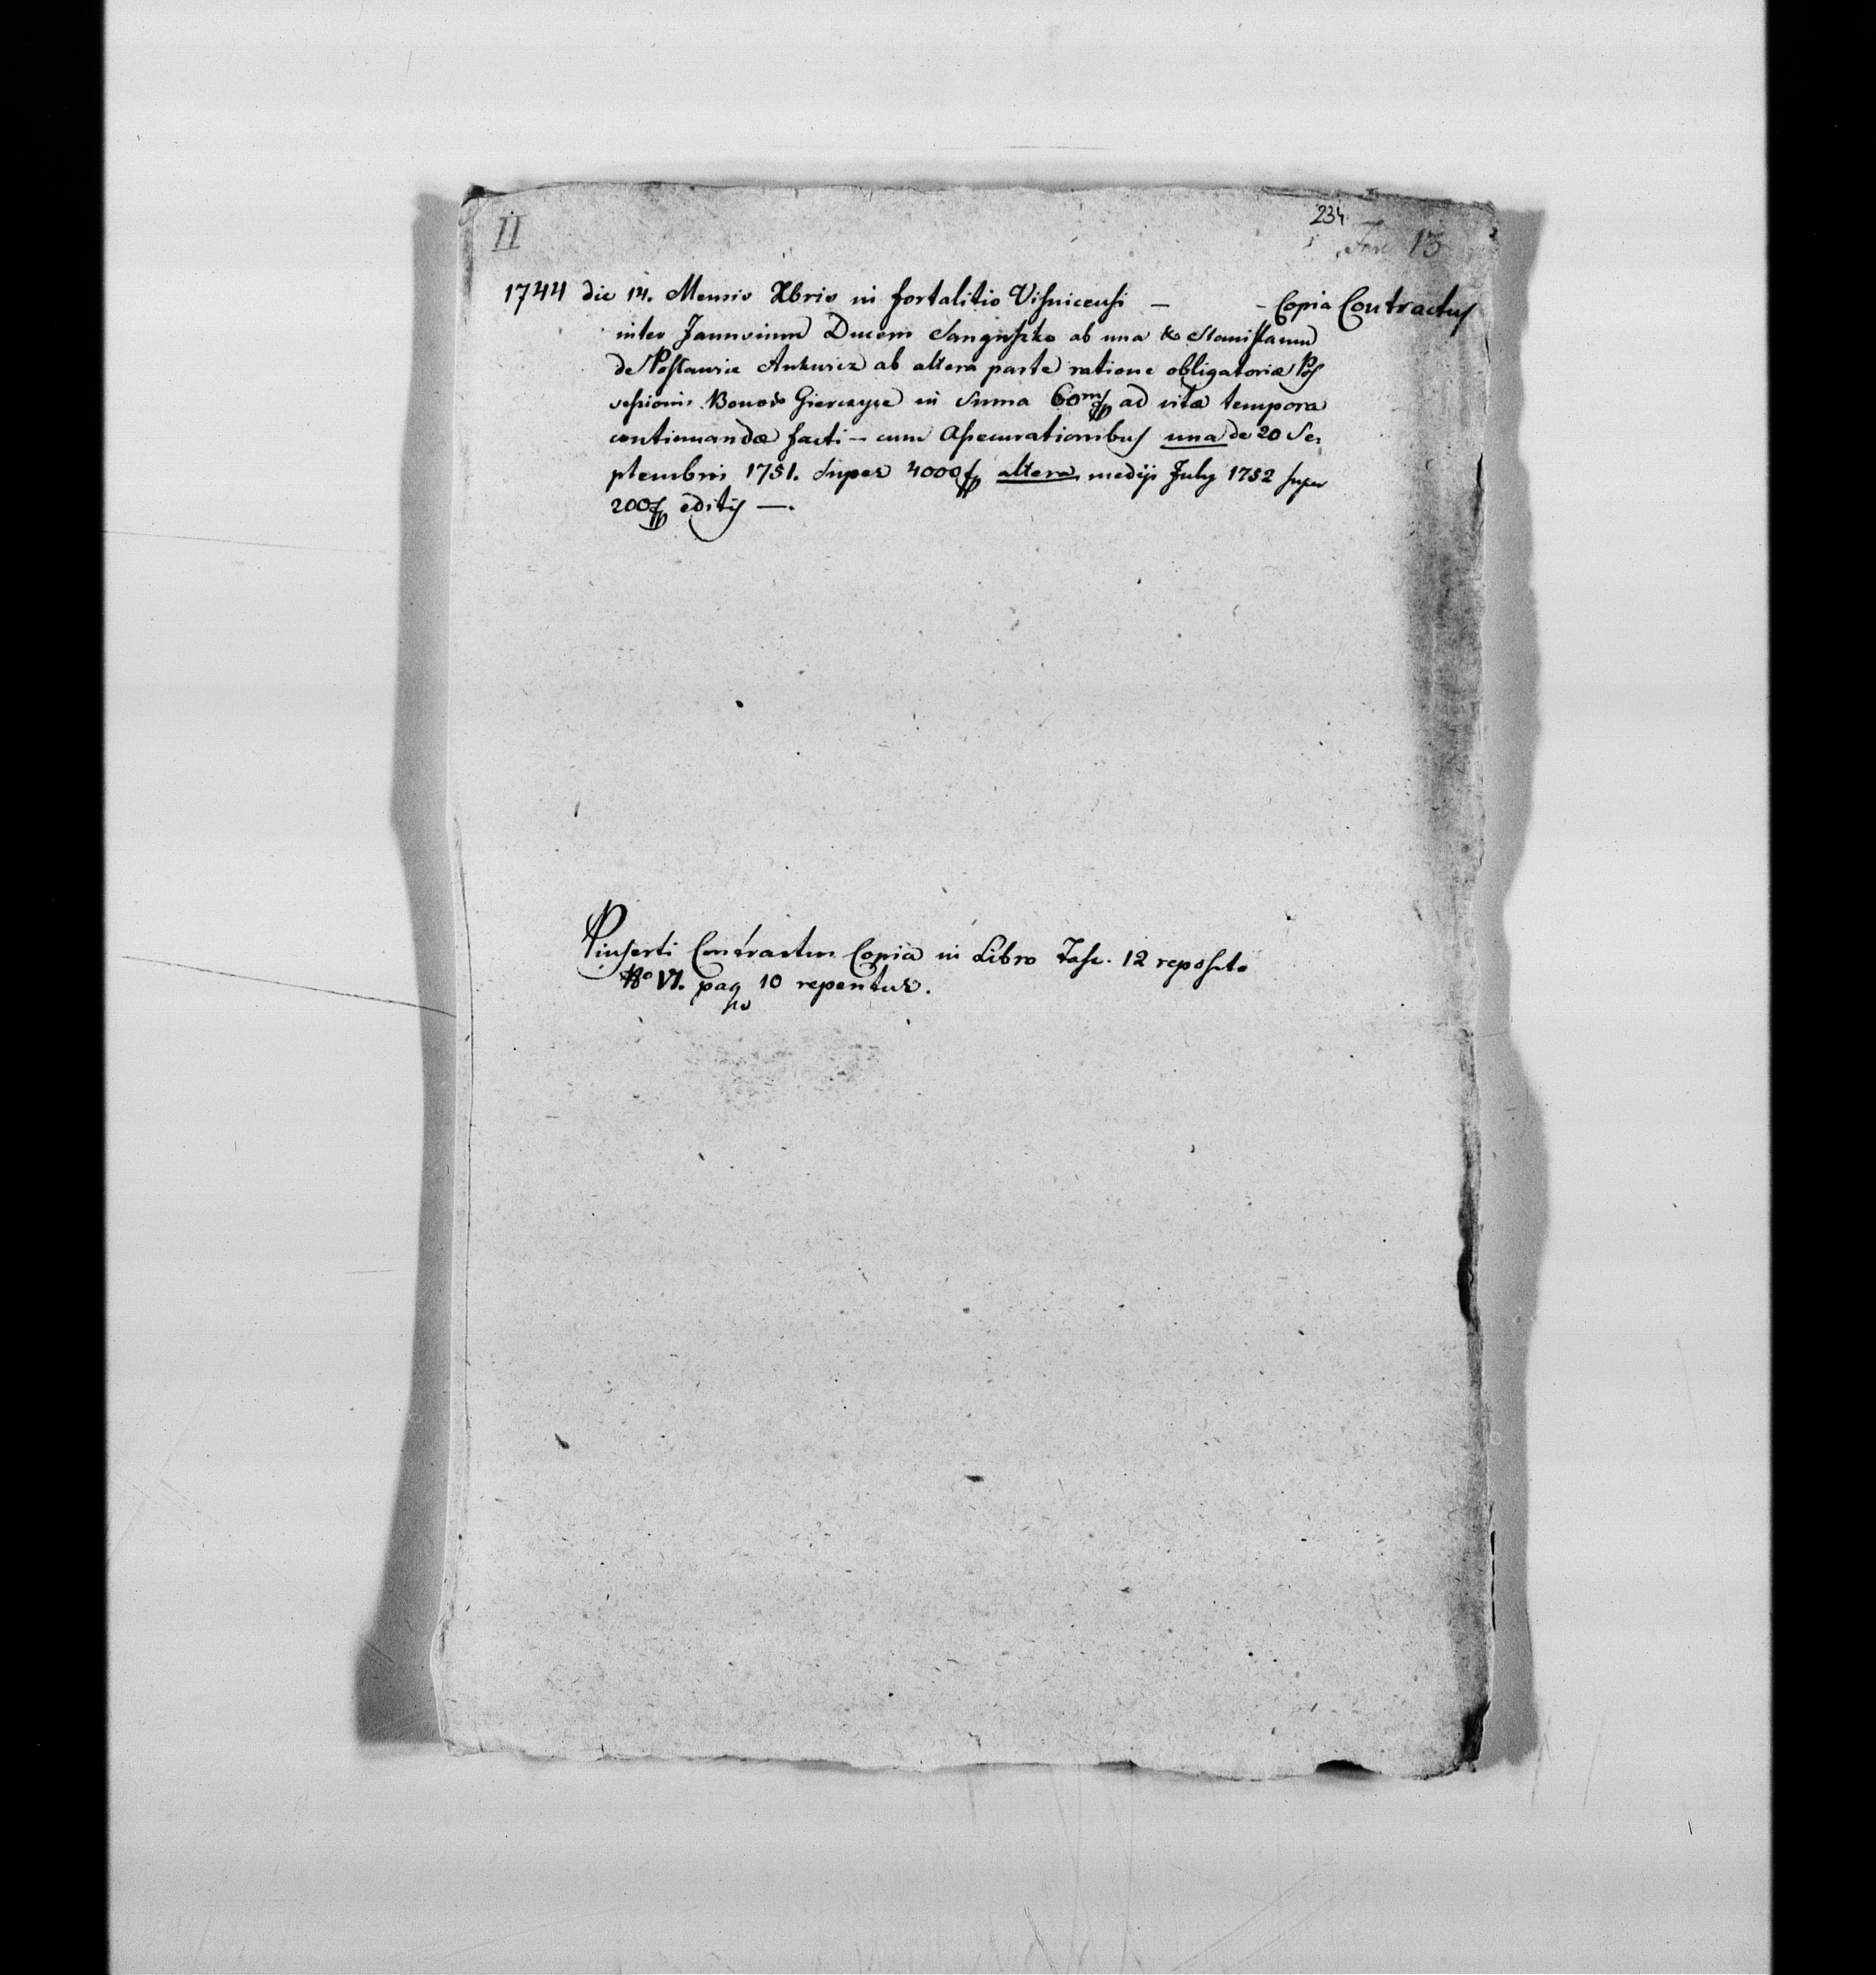 II
234
Fasc 13
1744 die 14. Mensis Xbris in fortalitio Visnicensi — - Copia Contractus
inter Januvium Ducem Sanguszko ab una & Stanislaum
de Poslawice Ankwicz ab altera parte ratione obligatoriæ Pos
sessionis Bonor Gierczyce in Suma 60m ad vitæ tempora
continuandæ facti — cum Assecurationibus una de 20 Se
ptembris 1751. super 4000 altera medij July 1752 super
200 editis —.
Pinserti Contractus Copia in Libro Fasc. 12 reposito
No VI. pag 10 reperitur.